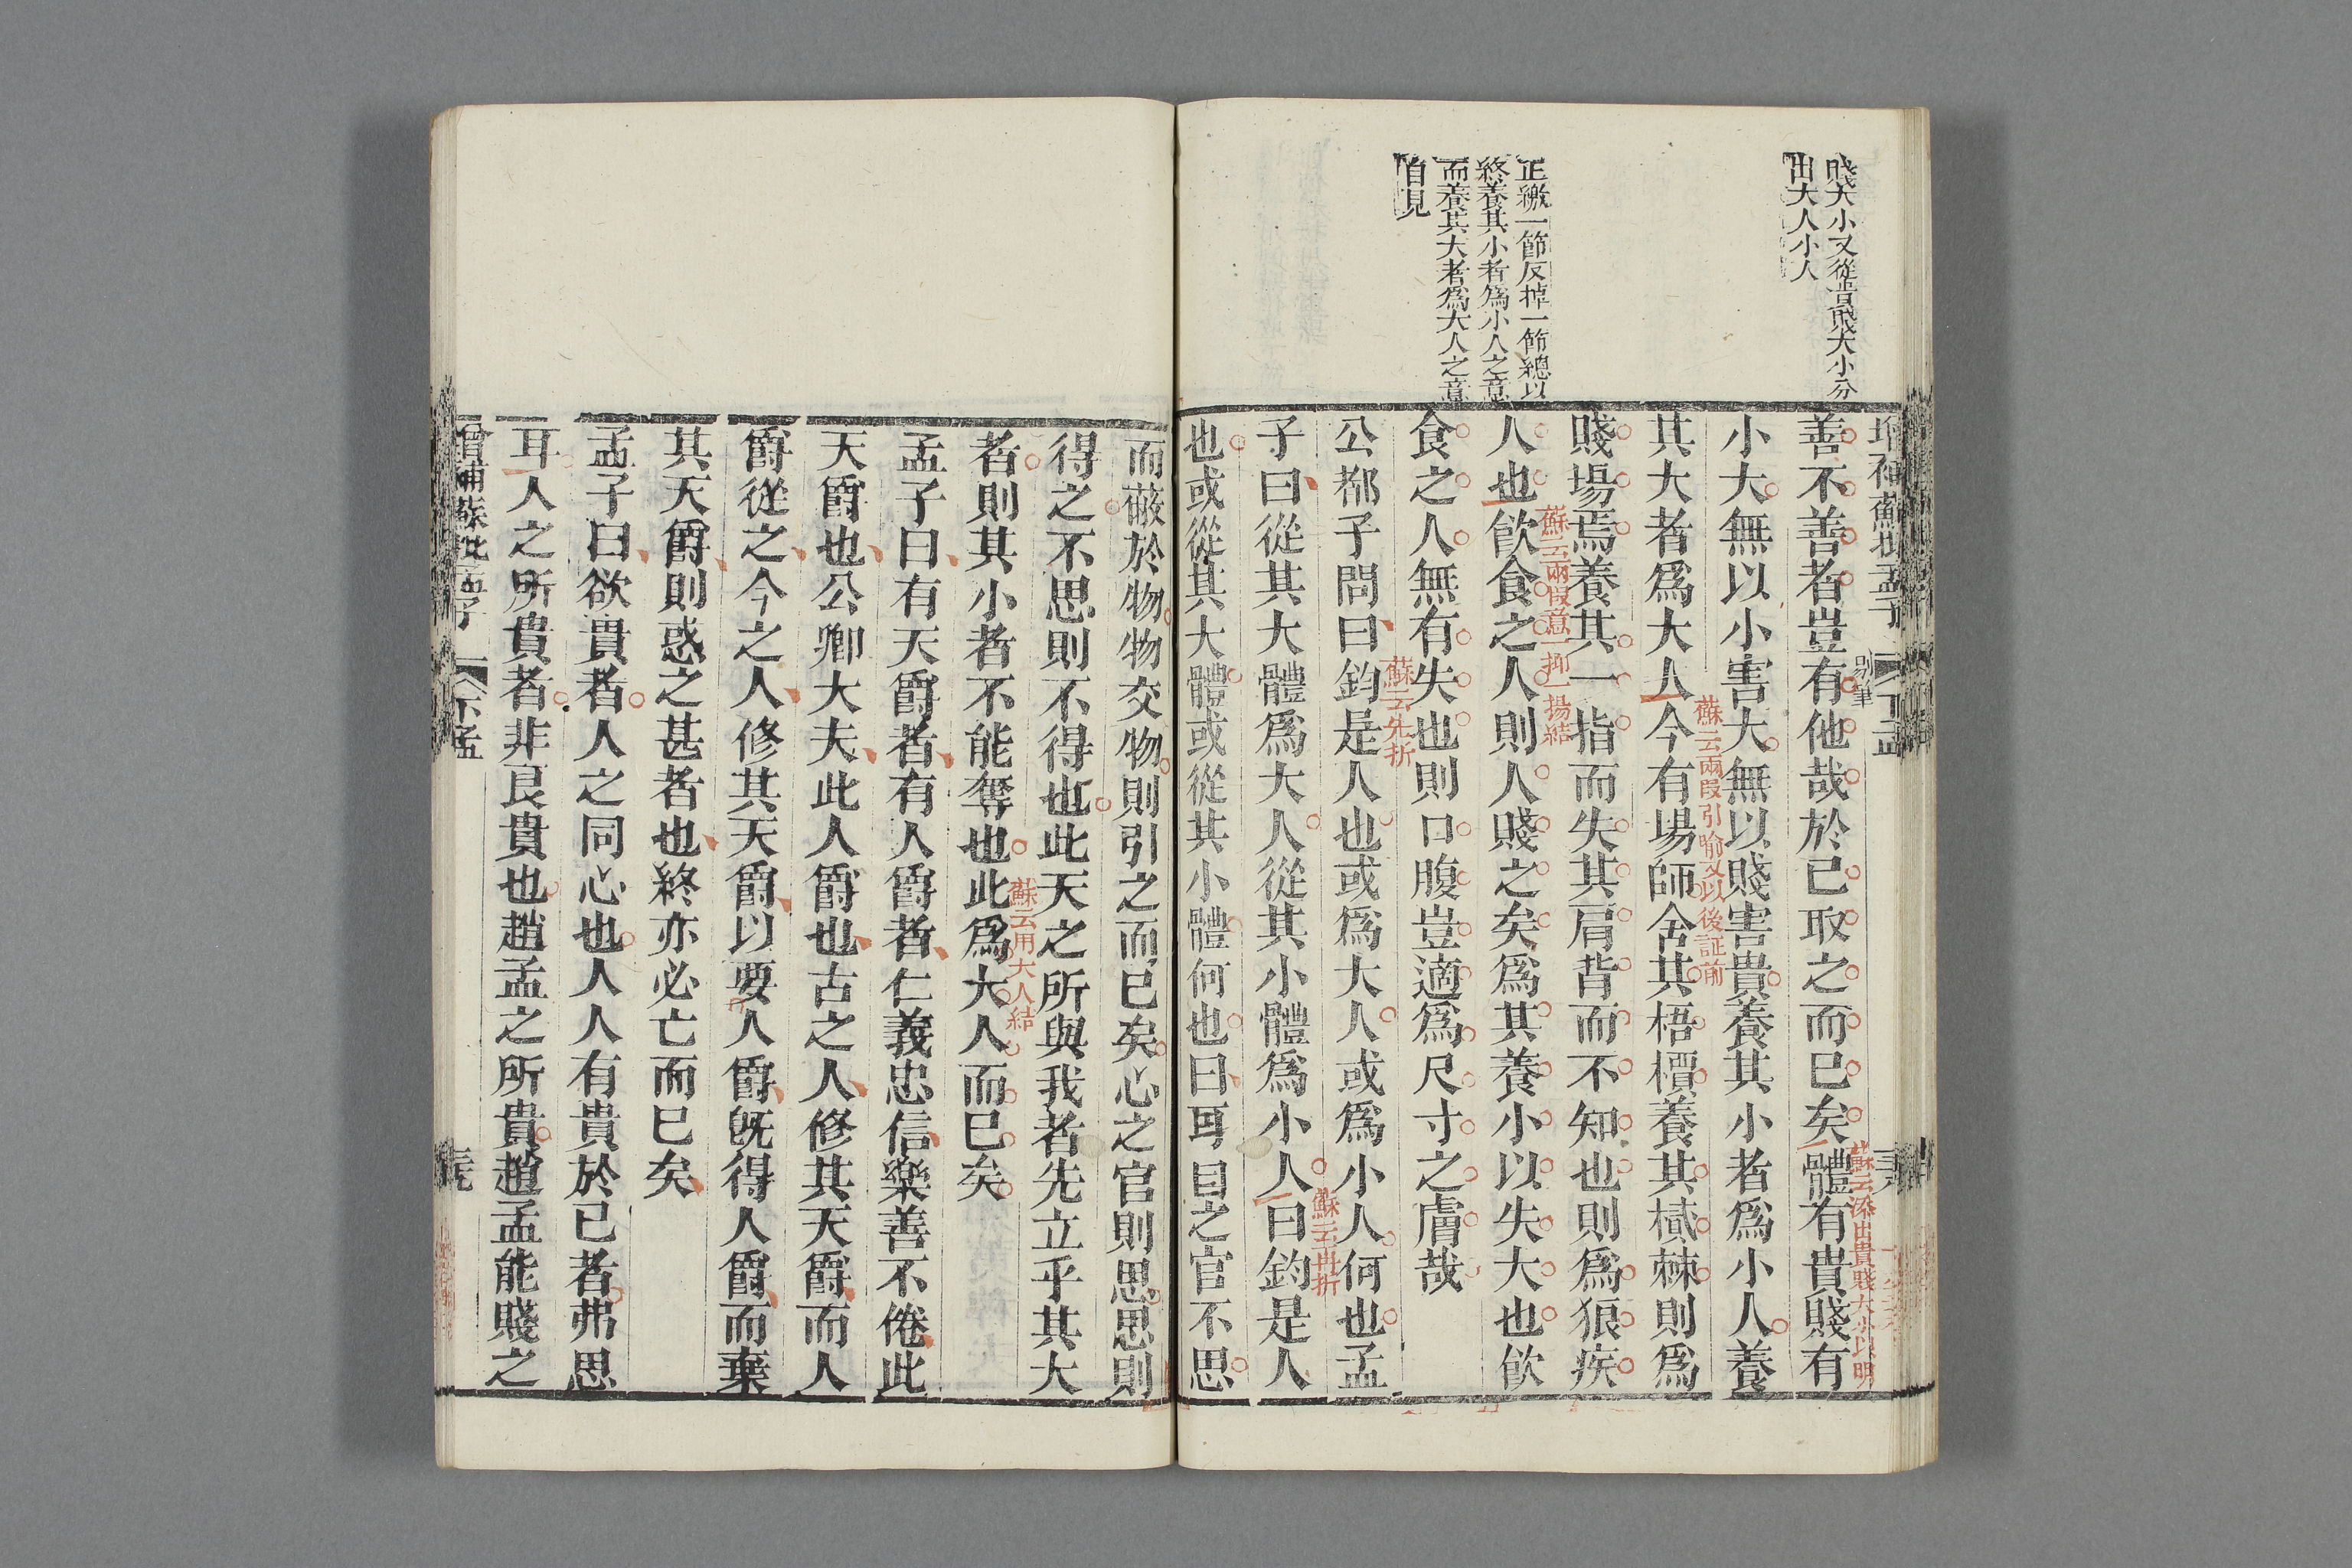 賤大小又從貴賤大小分
出大人小人
正繳一節反掉一節總以
終養其小者爲小人之意
而養其大者爲大人之意
自見
下孟
別筆
善不善者豈有他哉於已取之而已矣體有貴賤有
蘇云添出貴賤大小以明
小大無以小害大無以賤害貴養其小者爲小人養
其大者爲大人今有場師舍其梧檟養其樲棘則爲
蘇云兩段引喻又以後証前
賤場焉養其一指而失其肩背而不知也則爲狼疾
人也飮食之人則人賤之矣爲其養小以失大也飮
蘇云兩段意一抑一揚結
食之人無有失也則口腹豈適爲尺寸之膚哉
公都子問曰鈞是人也或爲大人或爲小人何也孟
蘇云先折
子曰從其大體爲大人從其小體爲小人曰鈞是人
蘇云再折
也或從其大體或從其小體何也曰耳目之官不思
而蔽於物物交物則引之而已矣心之官則思思則
得之不思則不得也此天之所與我者先立乎其大
者則其小者不能奪也此爲大人而已矣
蘇云用大人結
孟子曰有天爵者有人爵者仁義忠信樂善不倦此
天爵也公卿大夫此人爵也古之人修其天爵而人
爵從之今之人修其天爵以要人爵旣得人爵而棄
其天爵則惑之甚者也終亦必亡而已矣
孟子曰欲貴者人之同心也人人有貴於已者弗思
耳人之所貴者非良貴也趙孟之所貴趙孟能賤之
增補蘇批孟子
下孟